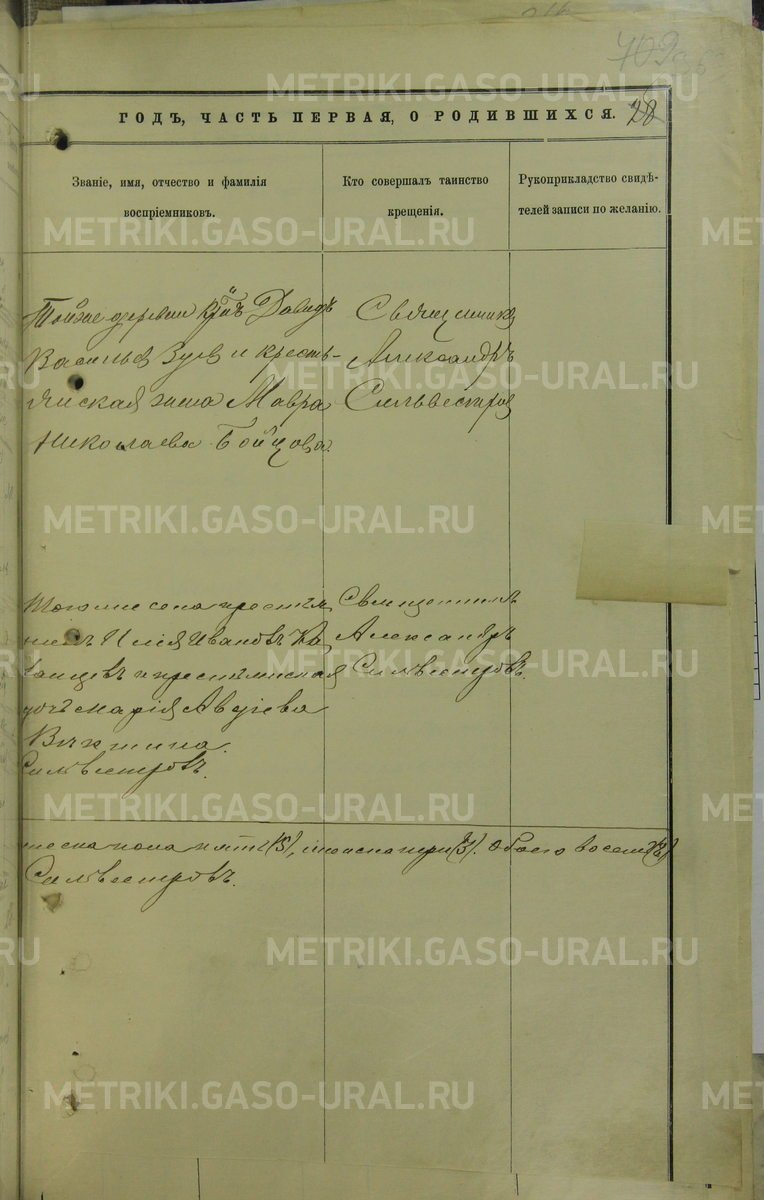 ГОДЪ, ЧАСТЬ ПЕРВАЯ, О РОДИВШИХСЯ. 28
Званіе, имя, отчество и фамилія
воспріемниковъ.
Кто совершалъ таинство
крещенія.
Рукоприкладство свидѣ-
телей записи по желанію.
Тойже деревни Давидъ
Васильев Зуев и кресть-
янская жена Мавра
Николаева Бойцова.
Священникъ
Александръ
Сильвестров
Тогоже села крестья
нинъ Илія Ивановъ
и крестьянская
дочь Марія
Силвестровъ.
Священникъ
Александръ
Силвестровъ.
пола пять (5), (3). Обоего восемь (8)
Силвестровъ.
METRIKI.GASO-URAL.RU